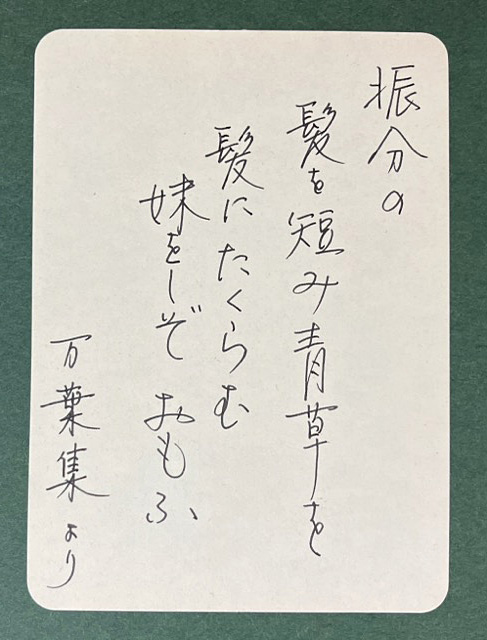 振分の
髪を短み青草を
髪にたくらむ
妹をしぞおもふ
万葉集より